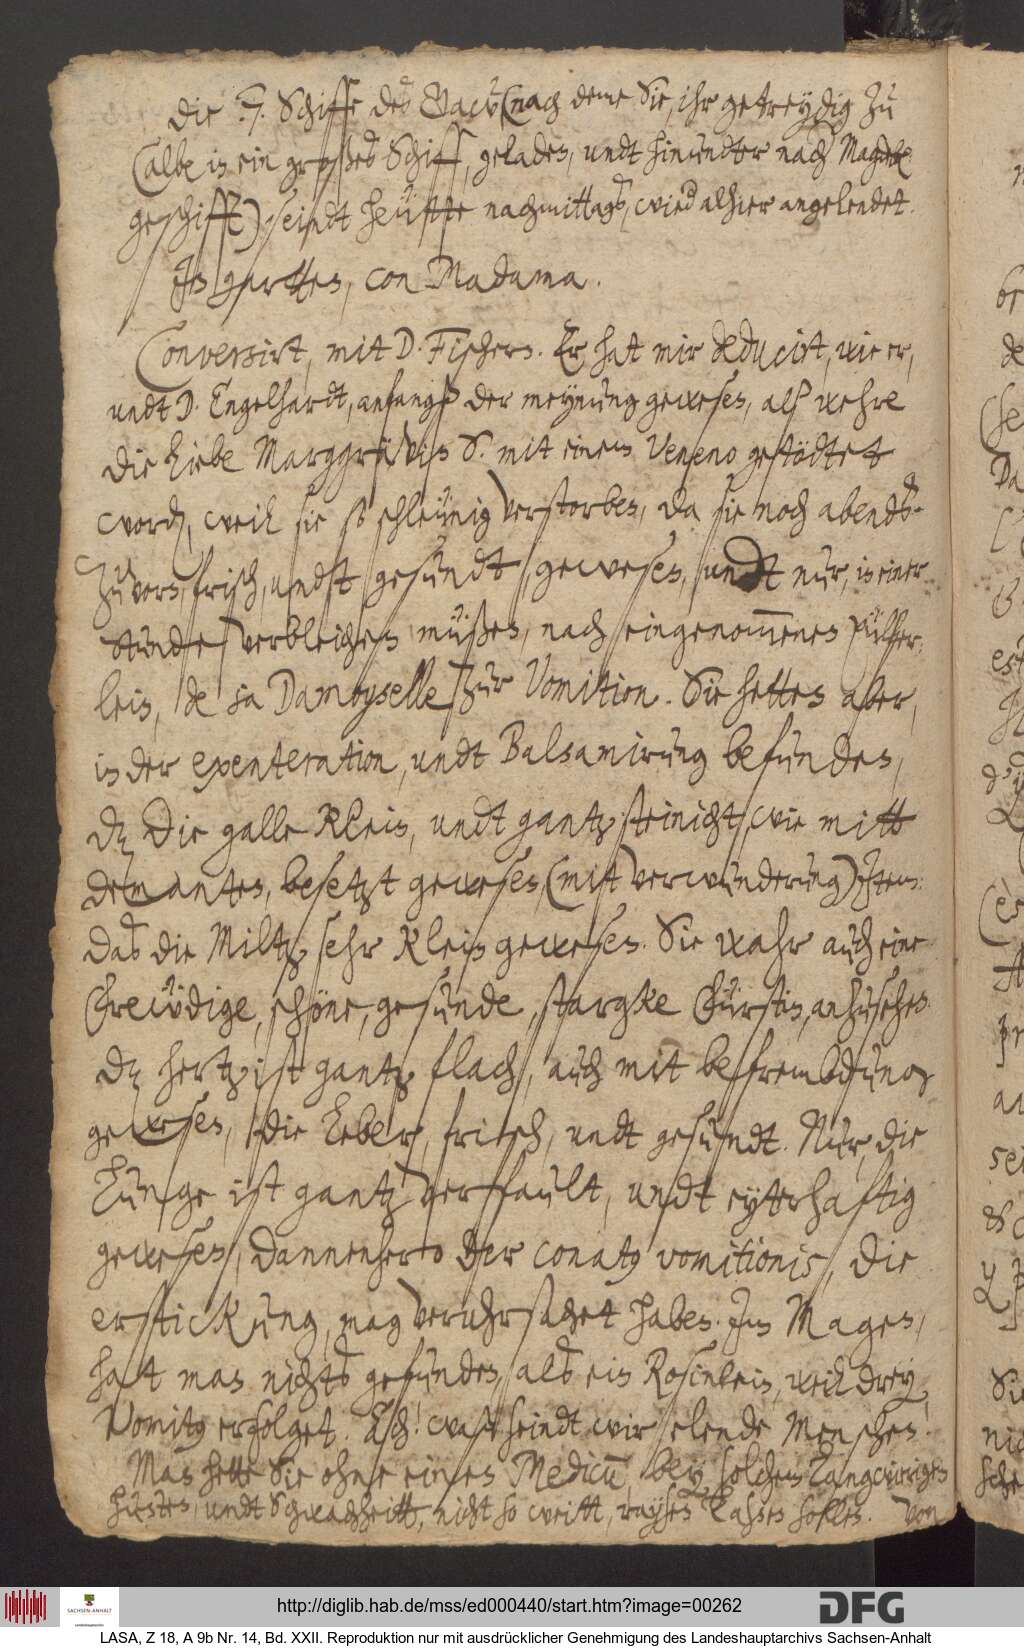 die 7. Schiffe des Bacũ (nach deme Sie, ihr getreydig zu
Calbe in ein großes Schiff, geladen, undt hinundter nach Magdb
geschifft) seindt heütte nachmittags, wied alhier angelendet.
In gartten, con Madama.
Conversirt, mit D. Fischern. Er hat mir deducirt, wie er,
undt D. Engelhardt, anfangß der meynung gewesen, alß wehre
die liebe Marggräfin S. mit einem Veneno getödtet
word, weil sie so schleünig verstorben, da sie noch abends-
zuvorn, frisch, undt gesundt, gewesen, undt nur, in einer
stunde verbleichen müßen, nach eingenom̄enen pülfer,
lein, de sa Damoyselle zur Vomition. Sie hetten aber,
in der exenteration, undt Balsamirung befunden,
dz die galle klein, undt gantz steinicht, wie mitt
demanten, besetzt gewesen, (mit verwunderung) Item:
das die Miltz sehr klein gewesen. Sie wahr auch eine
frewdige, schöne, gesunde, stargke Fürstin, anzusehen.
dz hertz ist gantz flach, auch mit befrembdung
gewesen, die Leber, frisch, undt gesundt. Nur, die
Lunge ist gantz verffault, undt eytterhaftig
gewesen, dannenhero der conatus vomitionis, die
erstickung, mag veruhrsachet haben. Im Magen,
hatt man nichts gefunden, als ein Rosinlein, weil drey
Vomitus erfolget. Ach! waß seindt wir elende Menschen.
Man hette Sie ohne einen Medicũ, bey solchem langwirigen
husten, undt Schwachheitt, nicht so weitt, raysen laßen sollen. Von
http://diglib.hab.de/mss/ed000440/start.htm?image=00262
SACHSEN-ANHALT
DFG
LASA, Z 18, A 9b Nr. 14, Bd. XXII. Reproduktion nur mit ausdrücklicher Genehmigung des Landeshauptarchivs Sachsen-Anhalt